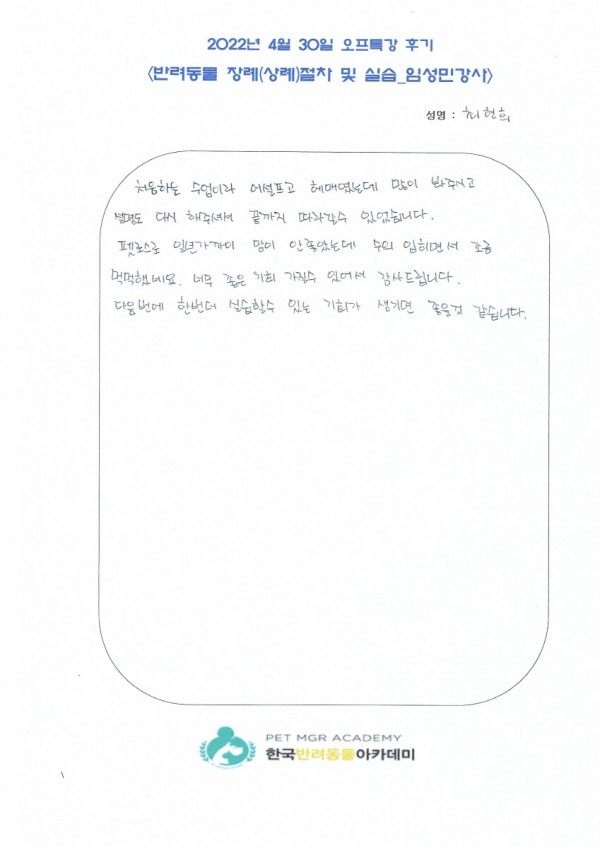 2022년 4월 30일 오프특강 후기
<반려동물 장례(상례)절차 및 실습_임성민강사>
성명 : 최현희
처음하는 수업이라 어설프고 헤매였는데 많이 봐주시고
설명도 다시 해주셔서 끝까지 따라갈수 있었습니다.
펫로스로 일년가까이 맘이 안좋았는데 수의 입히면서 조금
먹먹했네요. 너무 좋은 기회 가질수 있어서 감사드립니다.
다음번에 한번더 실습할수 있는 기회가 생기면 좋을것 같습니다.
PET MGR ACADEMY
한국반려동물아카데미